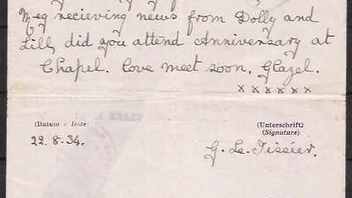 Meg recieving news from Dolly and
Lill, did you attend Anniversary at
Chapel. love meet soon, Glazel.
x x x x x x
(Datum - Date) (Unterschrift)
(Signature)
22.8.34. G. Le-Tissier.